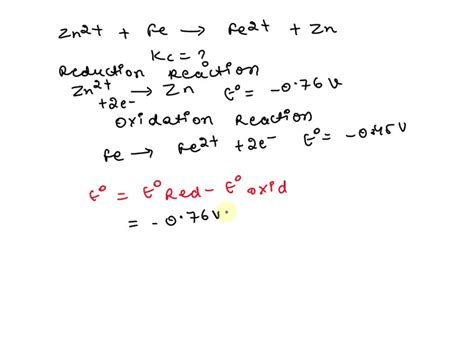 Zn²⁺ + Fe → Fe²⁺ + Zn
Kc = ?
Reduction Reaction
Zn²⁺ → Zn E° = -0.76 V
+2e⁻
Oxidation Reaction
Fe → Fe²⁺ +2e⁻ E° = -0.45 V
E° = E° Red - E° oxid
= -0.76 V.